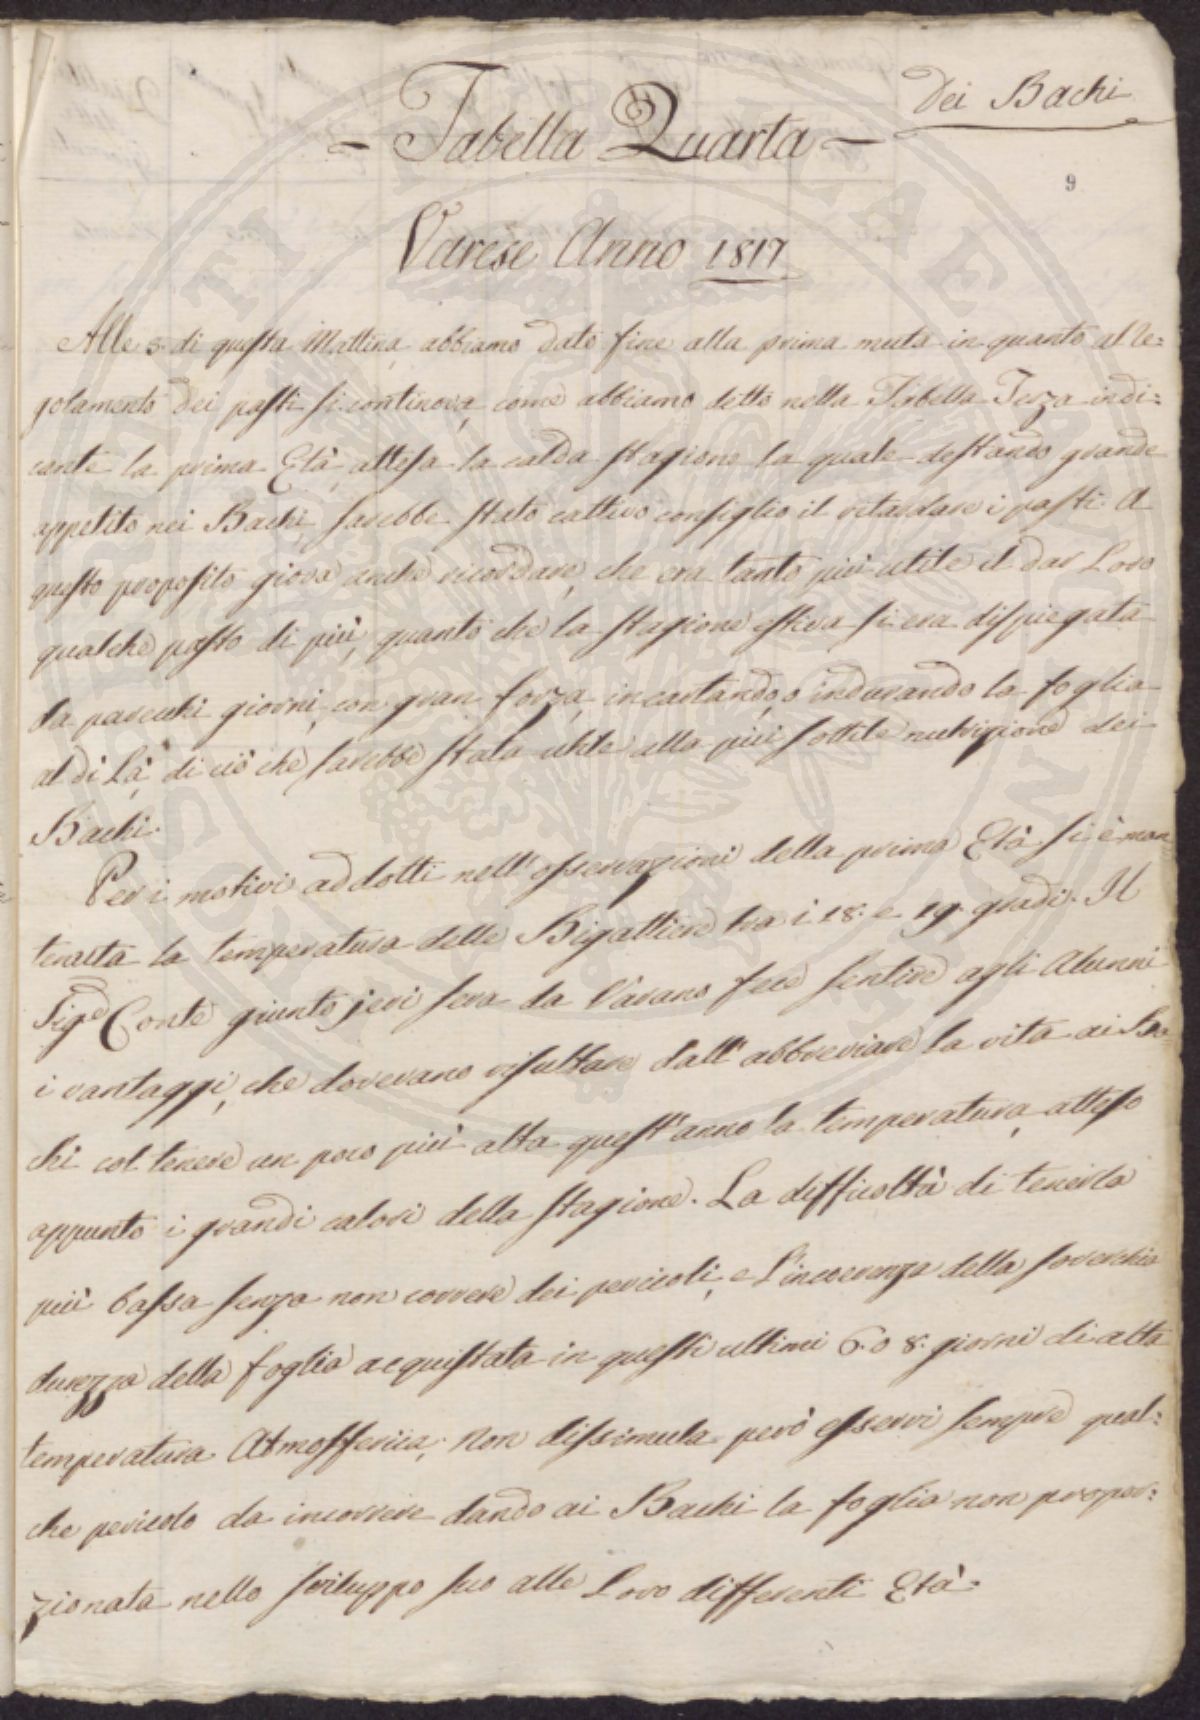 Dei Bachi
- Tabella Quarta -
9
Varese Anno 1817
Alle 5. di questa Mattina abbiamo dato fine alla prima muta in quanto al Re=
golamento dei pasti si continova, come abbiamo detto nella Tabella Terza indi=
cante la prima Età, attesa la calda stagione la quale destando grande
appetito nei Bachi, sarebbe stato cattivo consiglio il ritardare i pasti. A
questo proposito giova anche ricordare, che era tanto più utile il dar Loro
qualche pasto di più, quanto che la stagione estiva si era dispiegata
da parecchi giorni, con gran forza, incartando, o indurando la foglia
al di Là, di ciò che sarebbe stata utile alla più sottile nutrizione dei
Bachi.
Per i motivi addotti nell'osservazioni della prima Età si è man
tenuta la temperatura delle Bigattiere tra i 18. e 19. gradi. Il
Sig.e Conte giunto jeri sera da Varano fece sentire agli Alunni
i vantaggi, che dovevano risultare dall'abbreviare la vita ai Ba
chi col tenere un poco più alta quest'anno la temperatura, atteso
appunto i grandi calori della stagione. La difficoltà di tenerla
più bassa senza non correre dei pericoli, e l'increvenza della soverchia
durezza della foglia acquistata in questi ultimi 6. o 8. giorni di alta
temperatura Atmosferica; Non dissimula però esservi sempre qual=
che pericolo da incorrere dando ai Bachi la foglia non propor=
zionata nello sviluppo suo alle Loro differenti Età.